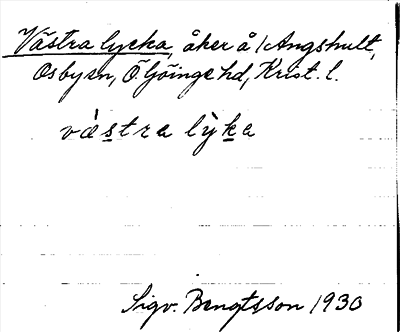 Västra lycka, åker å 1 Angshult,
Osby sn, Ö. Göinge hd, Krist. l.
västra lỳka
Sigv. Bengtsson 1930